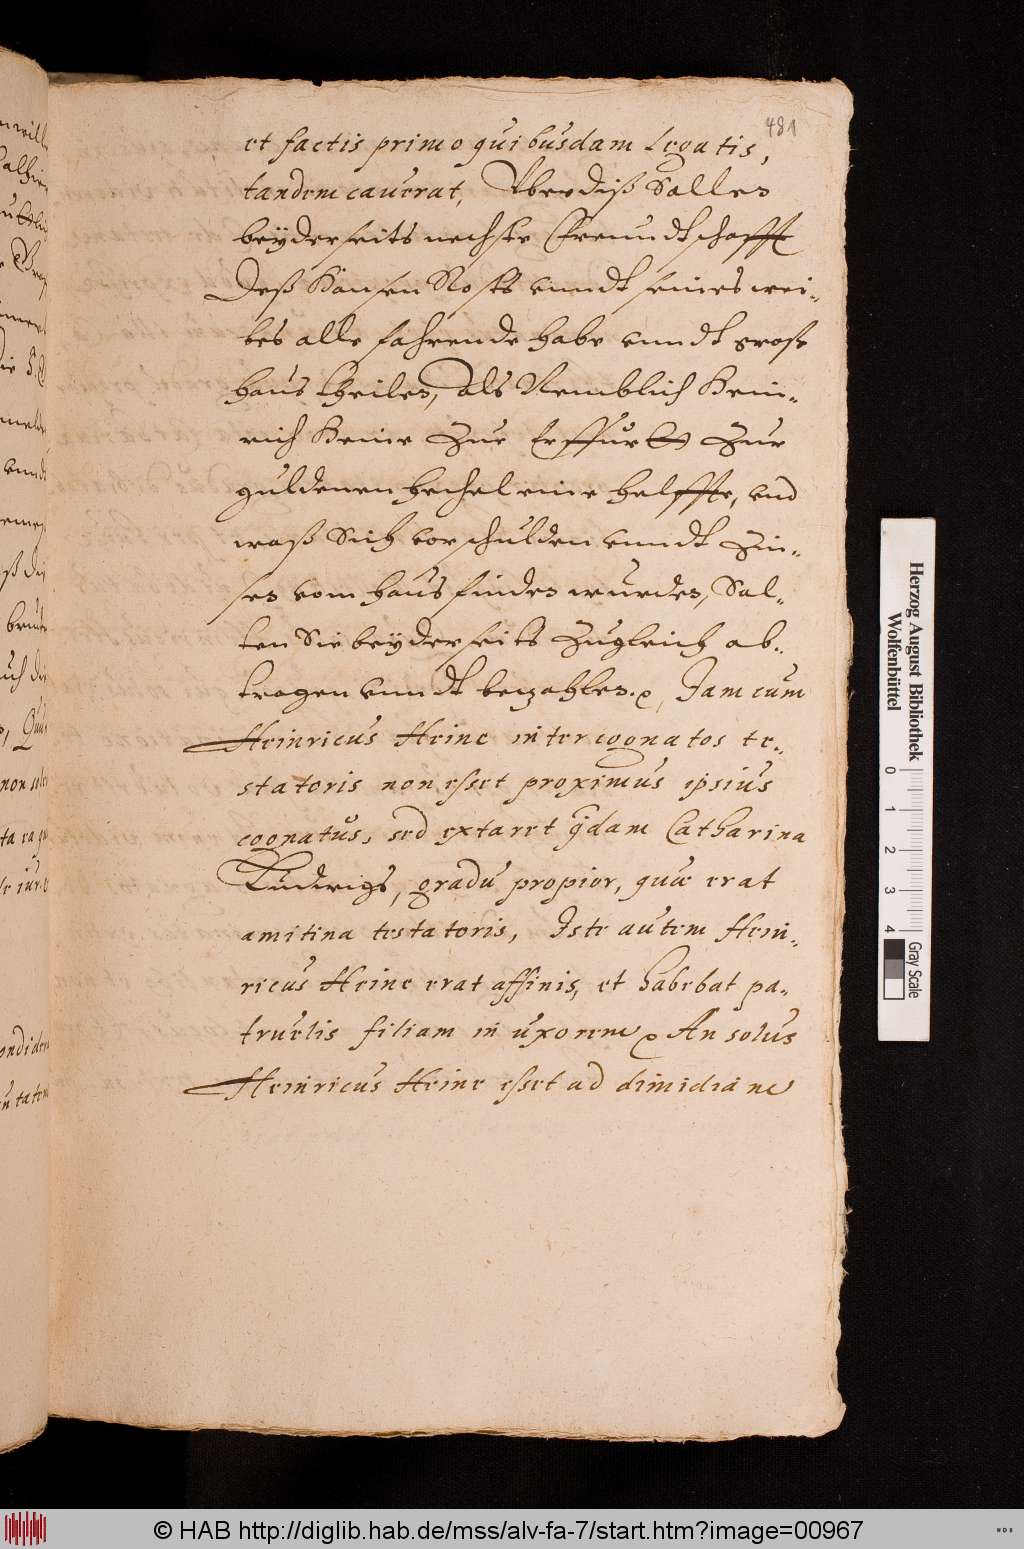 481
et factis primo quibusdam Legatis,
tandem caverat, Uberdiß Sollen
beyderseits nechste Freundtschafft
Deß Hansen Nosts unndt seines wei-
bes alle fahrende habe unndt grose
haus theilen, als Nemblich Hein-
rich Heine Zur Erffurtt Zur
guldenen hechel eine helffte, und
waß Sich vor schulden unndt Zin-
sen vom haus finden wurden, Sol-
ten Sie beyderseits Zugleich ab-
tragen unndt bezahlen. Jam cum
Heinricus Heine inter cognatos te-
statoris non esset proximus ipsius
cognatus, sed extaret qdam Catharina
Ludwigs, gradu propior, quæ erat
amitina testatoris, Iste autem Hein-
ricus Heine erat affinis, et habebat pa-
truelis filiam in uxorem An solus
Heinricus Heine esset ad dimidiam
Herzog August Bibliothek
Wolfenbüttel
0 1 2 3 4
Gray Scale
© HAB http://diglib.hab.de/mss/alv-fa-7/start.htm?image=00967